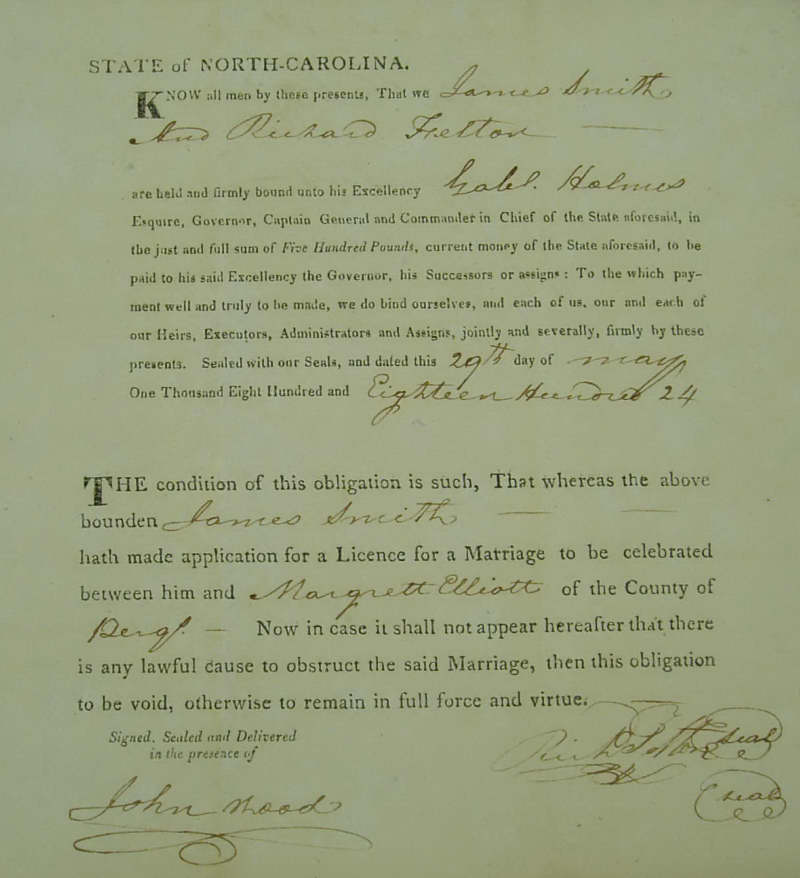 STATE of NORTH-CAROLINA.
KNOW all men by these presents, That we James Smith
And Richard Felton
are held and firmly bound unto his Excellency Gabl. Holmes
Esquire, Governor, Captain General and Commander in Chief of the State aforesaid, in
the just and full sum of Five Hundred Pounds, current money of the State aforesaid, to be
paid to his said Excellency the Governor, his Successors or assigns: To the which pay-
ment well and truly to be made, we do bind ourselves, and each of us, our and each of
our Heirs, Executors, Administrators and Assigns, jointly and severally, firmly by these
presents. Sealed with our Seals, and dated this 29th day of may
One Thousand Eight Hundred and Eighteen Hundred 24
THE condition of this obligation is such, That whereas the above
bounden James Smith
hath made application for a Licence for a Marriage to be celebrated
between him and Margrett Elliott of the County of
Perqs. Now in case it shall not appear hereafter that there
is any lawful cause to obstruct the said Marriage, then this obligation
to be void, otherwise to remain in full force and virtue.
Signed, Sealed and Delivered
in the presence of
Felton seal
seal
John Wood